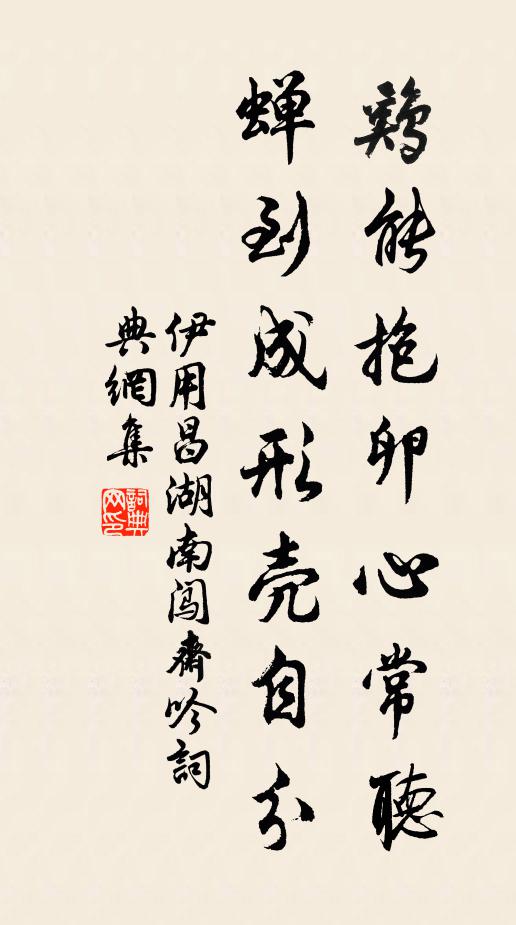 鷄能抱卵心常聽
蝉到成形壳自分
伊用昌湖南闯齋吟詞
典網集
詞典
网印